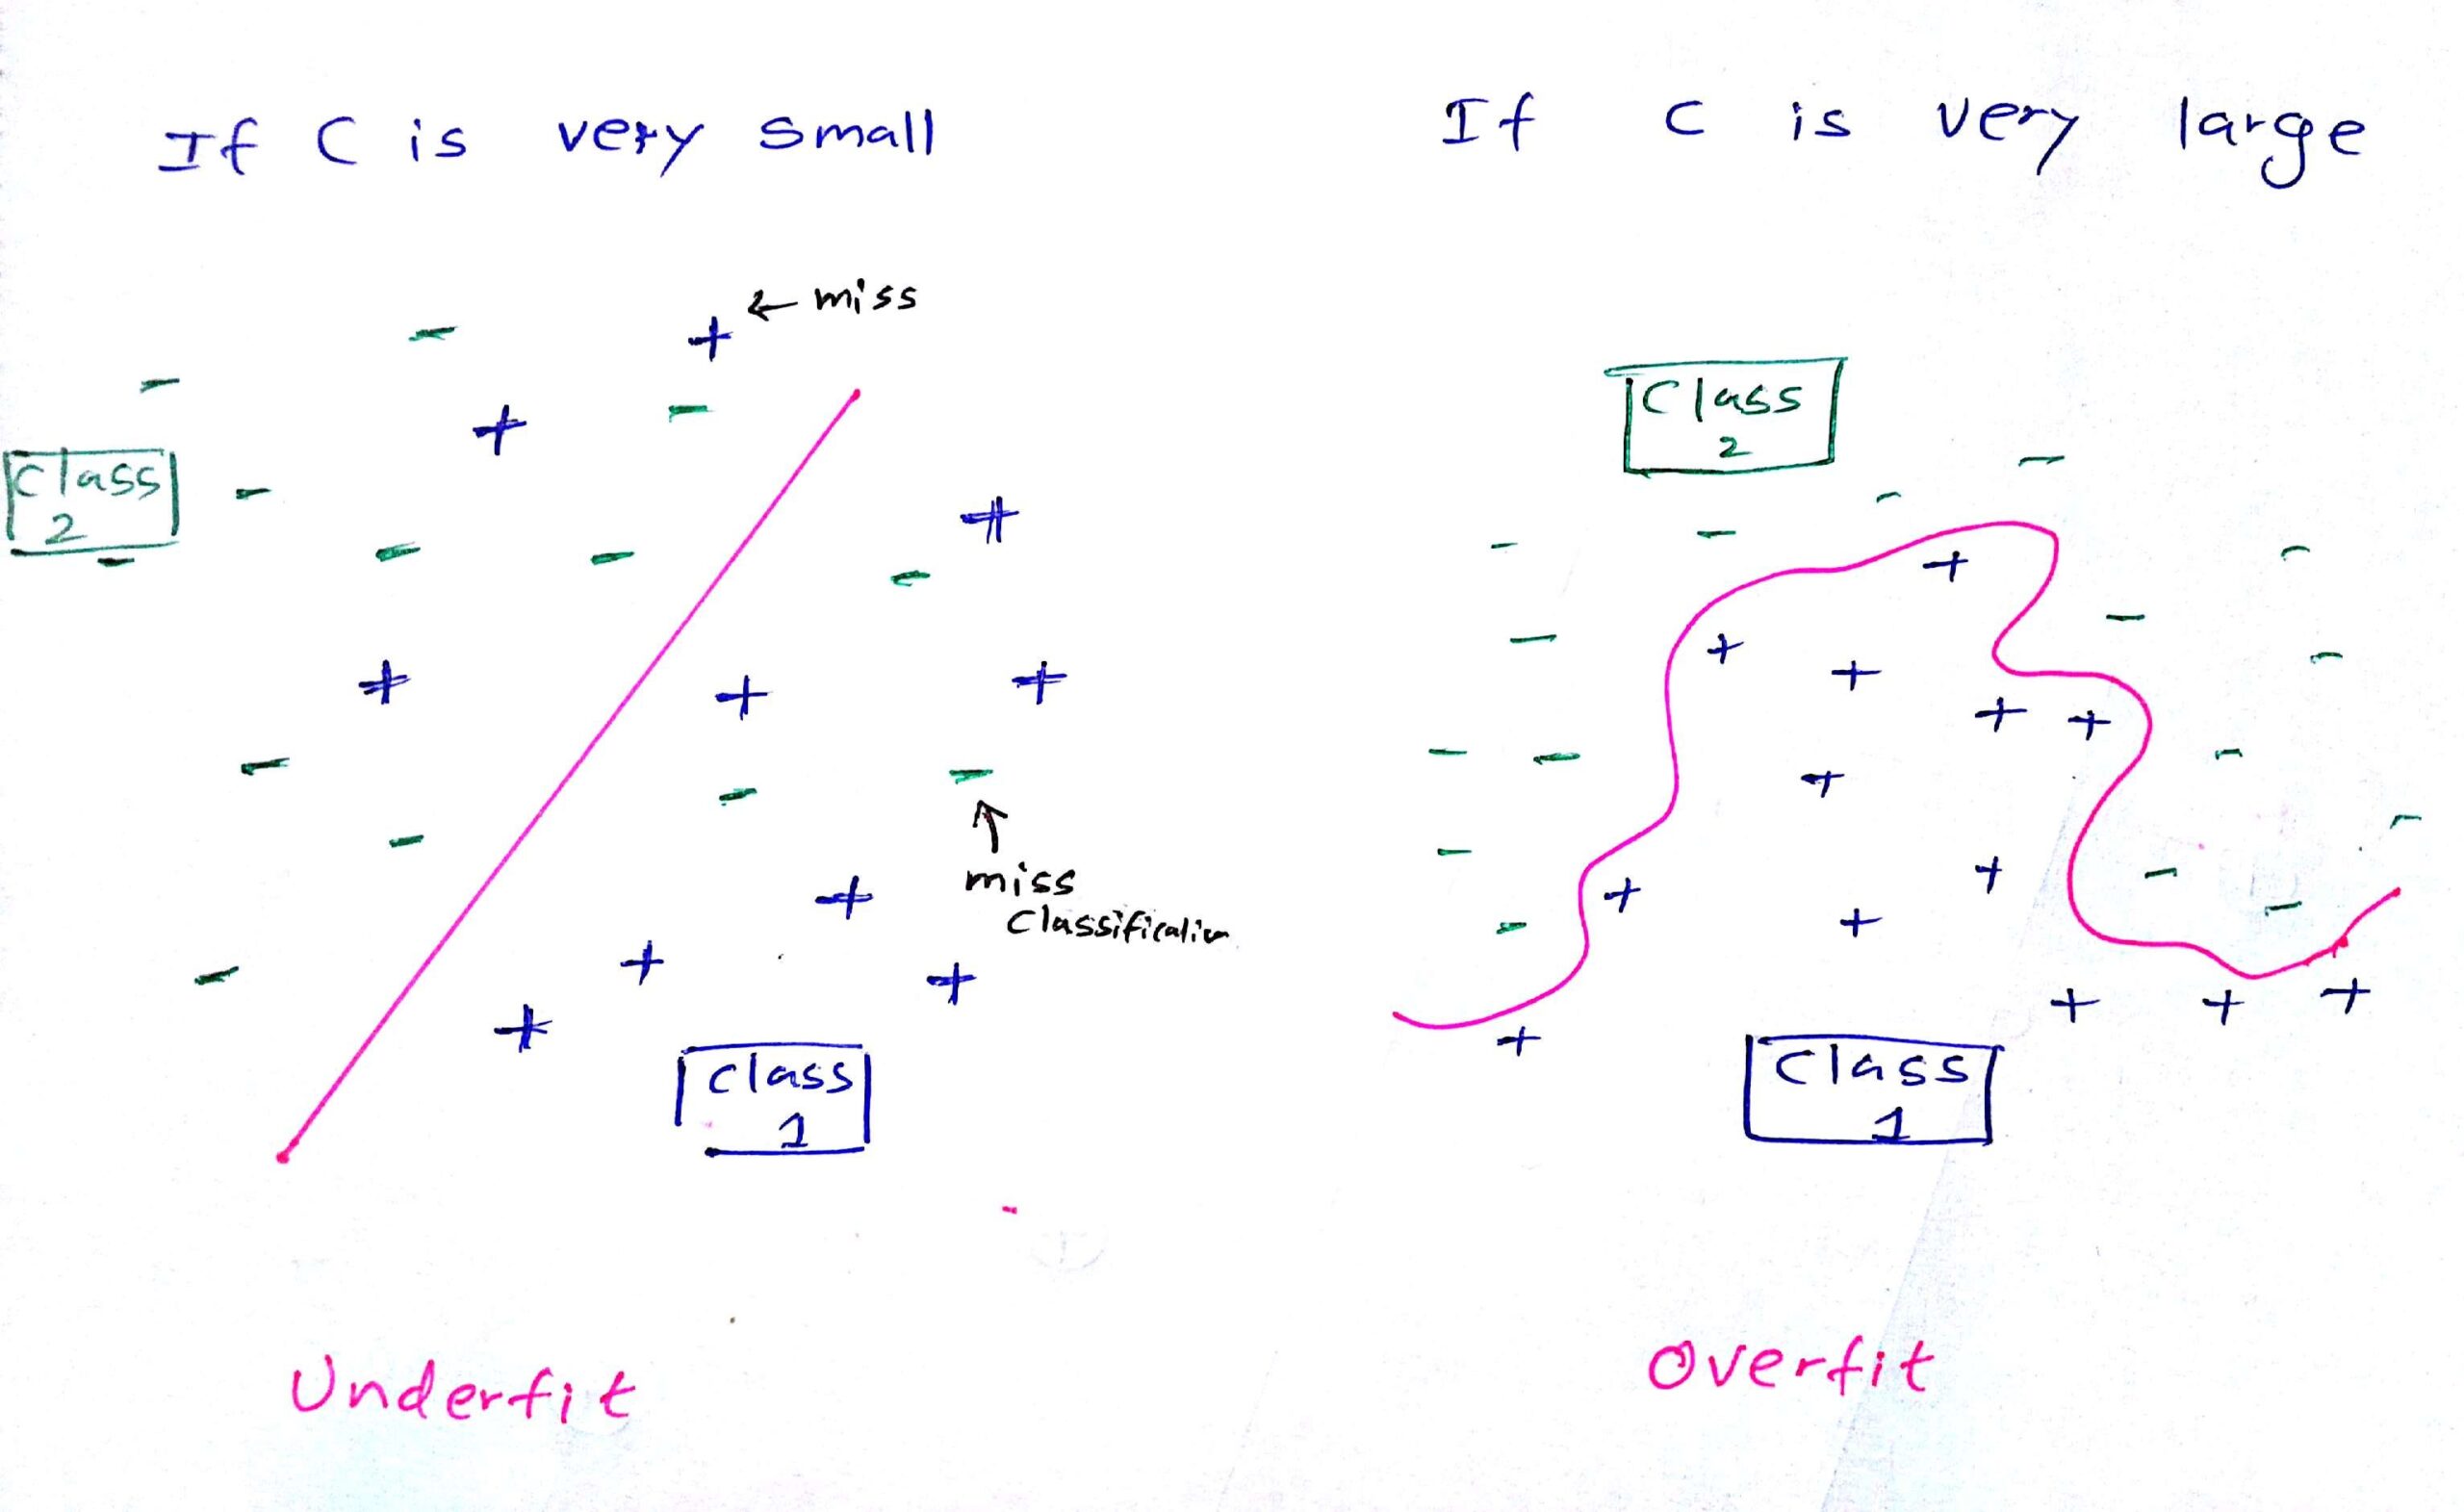 If C is very small
← miss
Class
2
↑
miss
Classification
Class
1
Underfit
If C is very large
Class
2
Class
1
Overfit